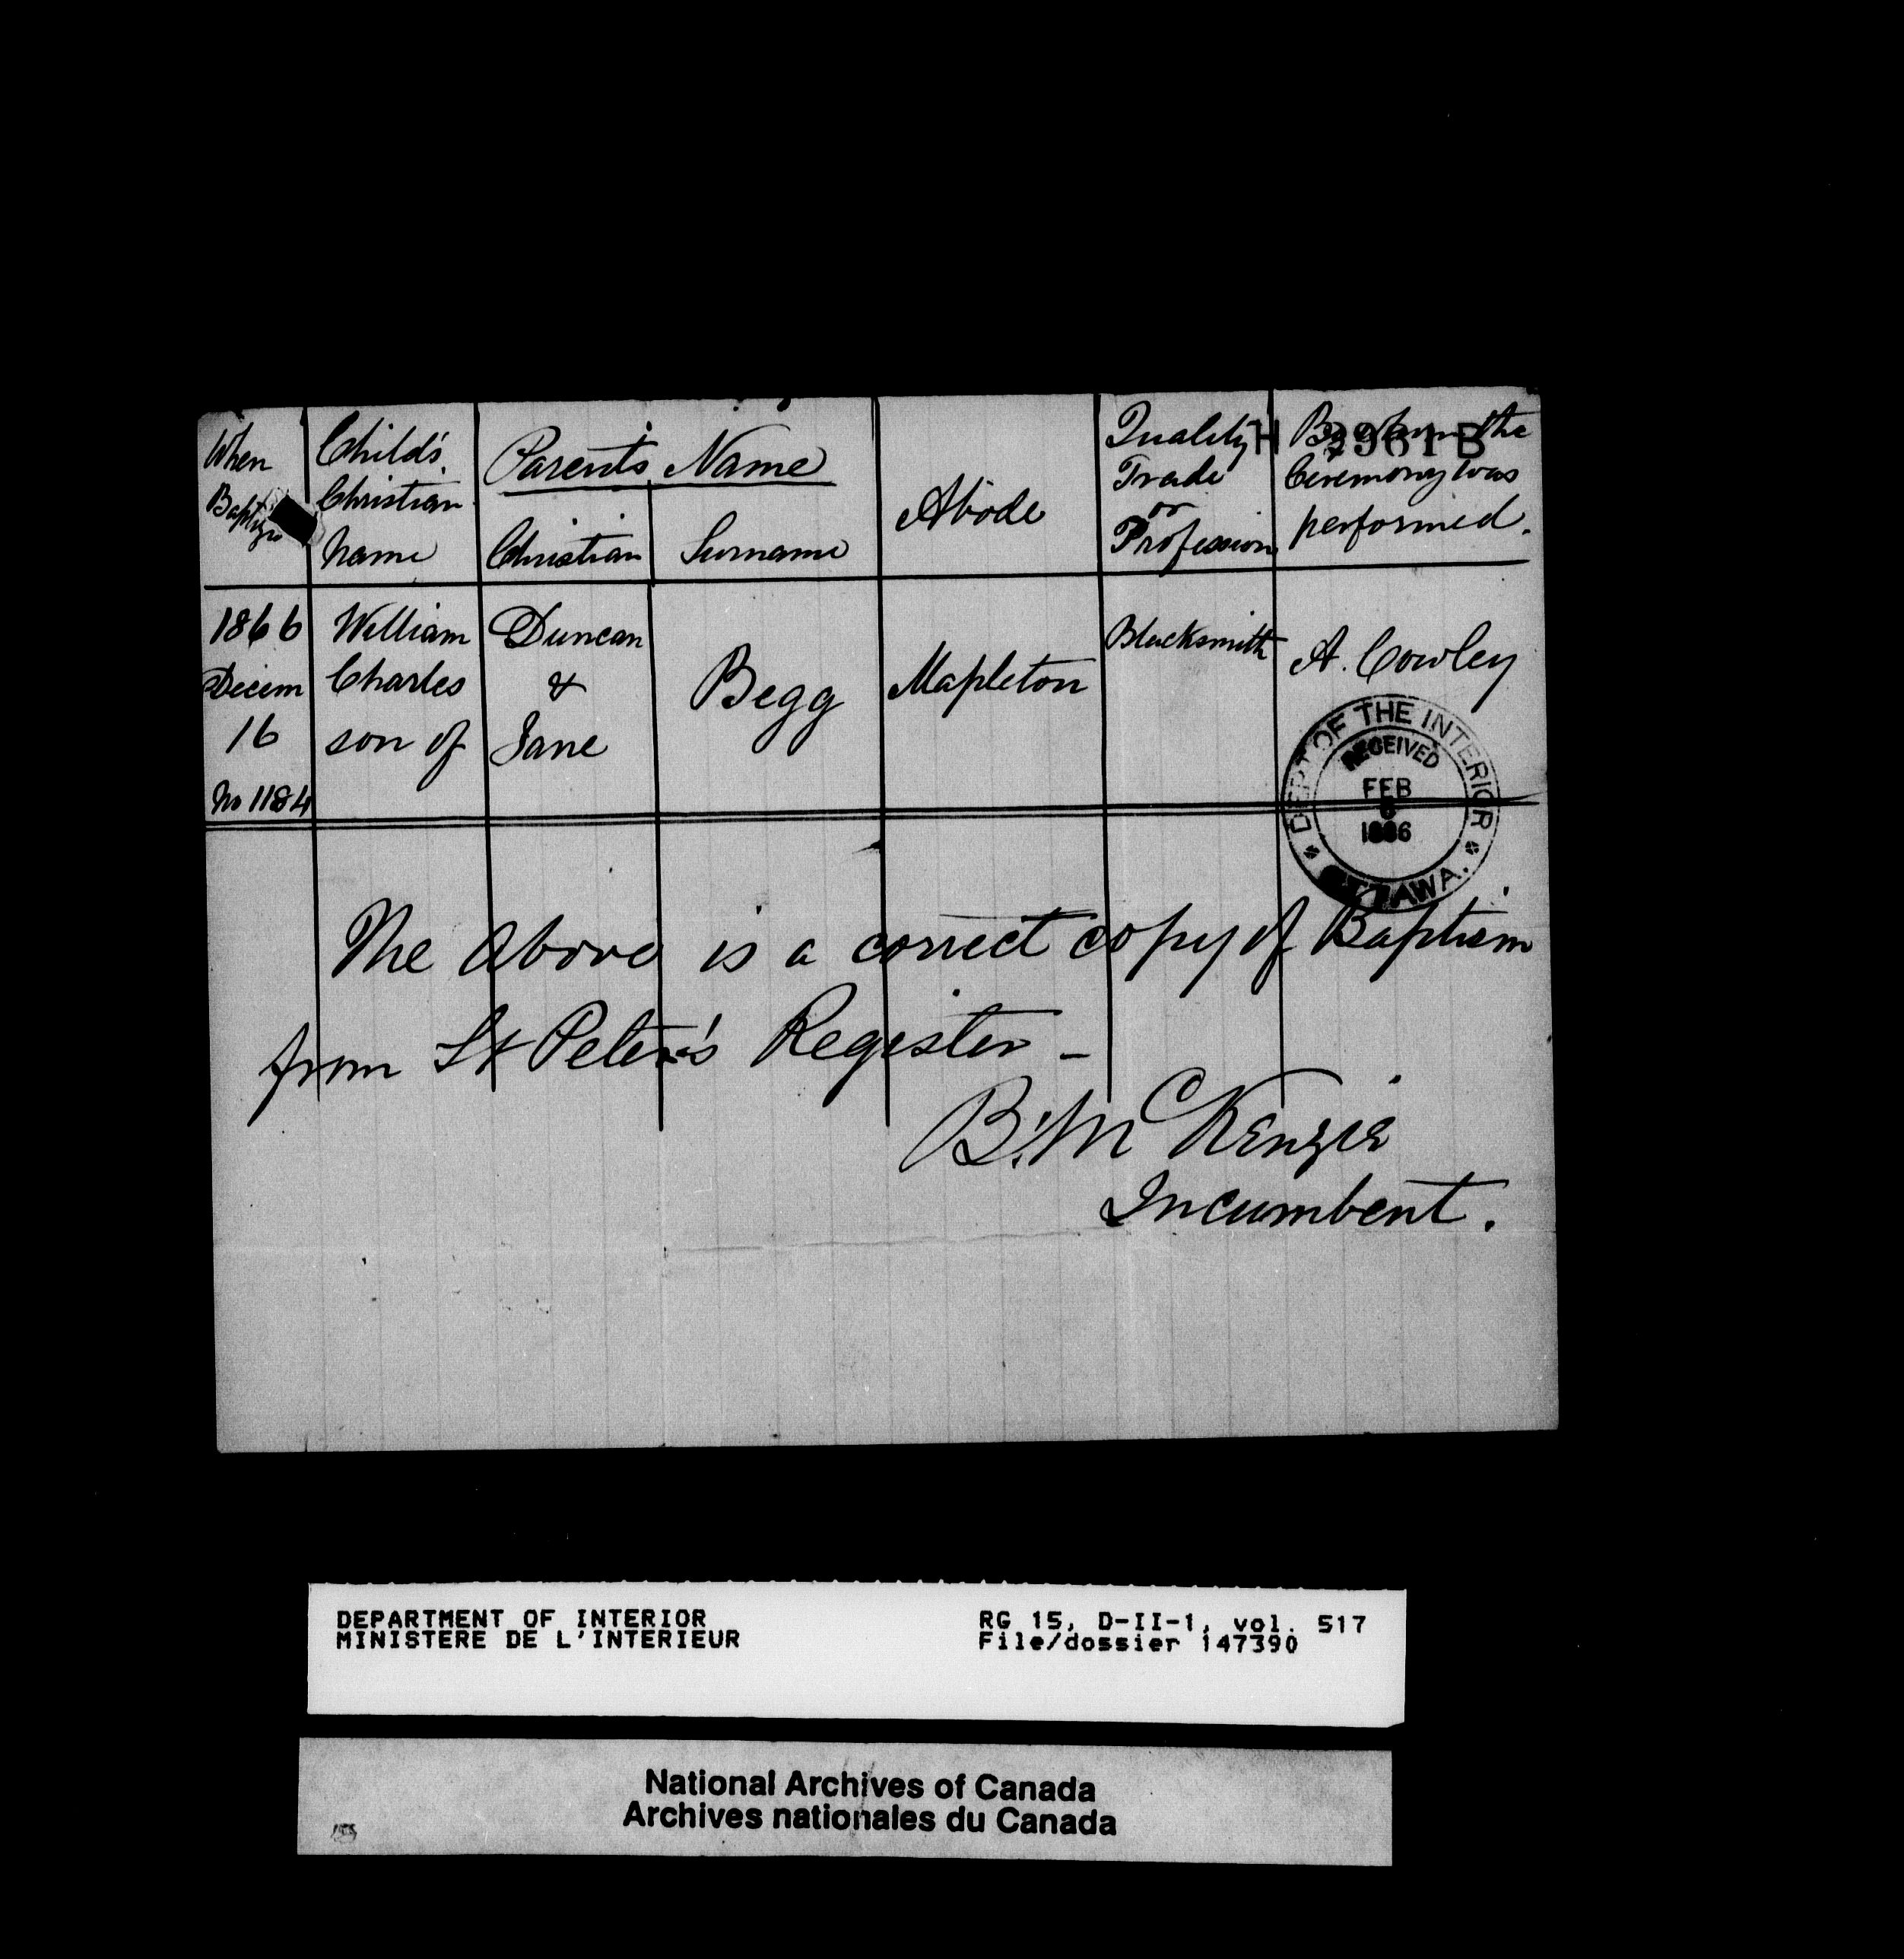 When
Baptize
Child's
Christian
Name
Parents Name
Christian
Surname
Abode
Quality
Trade
or
Profession
By whom the
Ceremony was
performed.
H 2961 B
1866
Decem
16
No 1184
William
Charles
son of
Duncan
&
Jane
Begg
Mapleton
Blacksmith
A. Cowley
DEPT OF THE INTERIOR
RECEIVED
FEB
1886
OTTAWA.
The above is a correct copy of Baptism
from St Peter's Register -
B. McKenzie
Incumbent.
DEPARTMENT OF INTERIOR
MINISTERE DE L'INTERIEUR
RG 15, D-II-1, vol. 517
File/dossier 147390
National Archives of Canada
Archives nationales du Canada